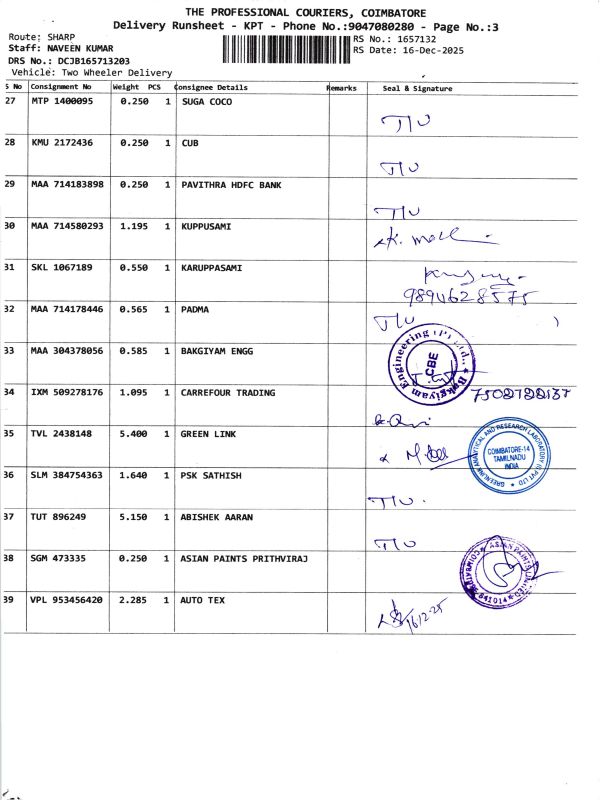 THE PROFESSIONAL COURIERS, COIMBATORE
Delivery Runsheet - KPT - Phone No.:9047080280 - Page No.:3
Route: SHARP
RS No.: 1657132
Staff: NAVEEN KUMAR
RS Date: 16-Dec-2025
DRS No.: DCJB165713203
Vehicle: Two Wheeler Delivery
S No Consignment No Weight PCS Consignee Details Remarks Seal & Signature
27 MTP 1400095 0.250 1 SUGA COCO
T/U
28 KMU 2172436 0.250 1 CUB
T/U
29 MAA 714183898 0.250 1 PAVITHRA HDFC BANK
T/U
30 MAA 714580293 1.195 1 KUPPUSAMI
31 SKL 1067189 0.550 1 KARUPPASAMI
9894628575
32 MAA 714178446 0.565 1 PADMA
T/U
33 MAA 304378056 0.585 1 BAKGIYAM ENGG
Bakgiyam Engineering (P) Ltd.,
CBE
34 IXM 509278176 1.095 1 CARREFOUR TRADING
35 TVL 2438148 5.400 1 GREEN LINK
GREENLINK ANALYTICAL AND RESEARCH LABORATORY (I) PVT LTD
COIMBATORE-14
TAMILNADU
INDIA
36 SLM 384754363 1.640 1 PSK SATHISH
T/U.
37 TUT 896249 5.150 1 ABISHEK AARAN
T/U
38 SGM 473335 0.250 1 ASIAN PAINTS PRITHVIRAJ
ASIAN PAINTS
641014
39 VPL 953456420 2.285 1 AUTO TEX
16/12-25